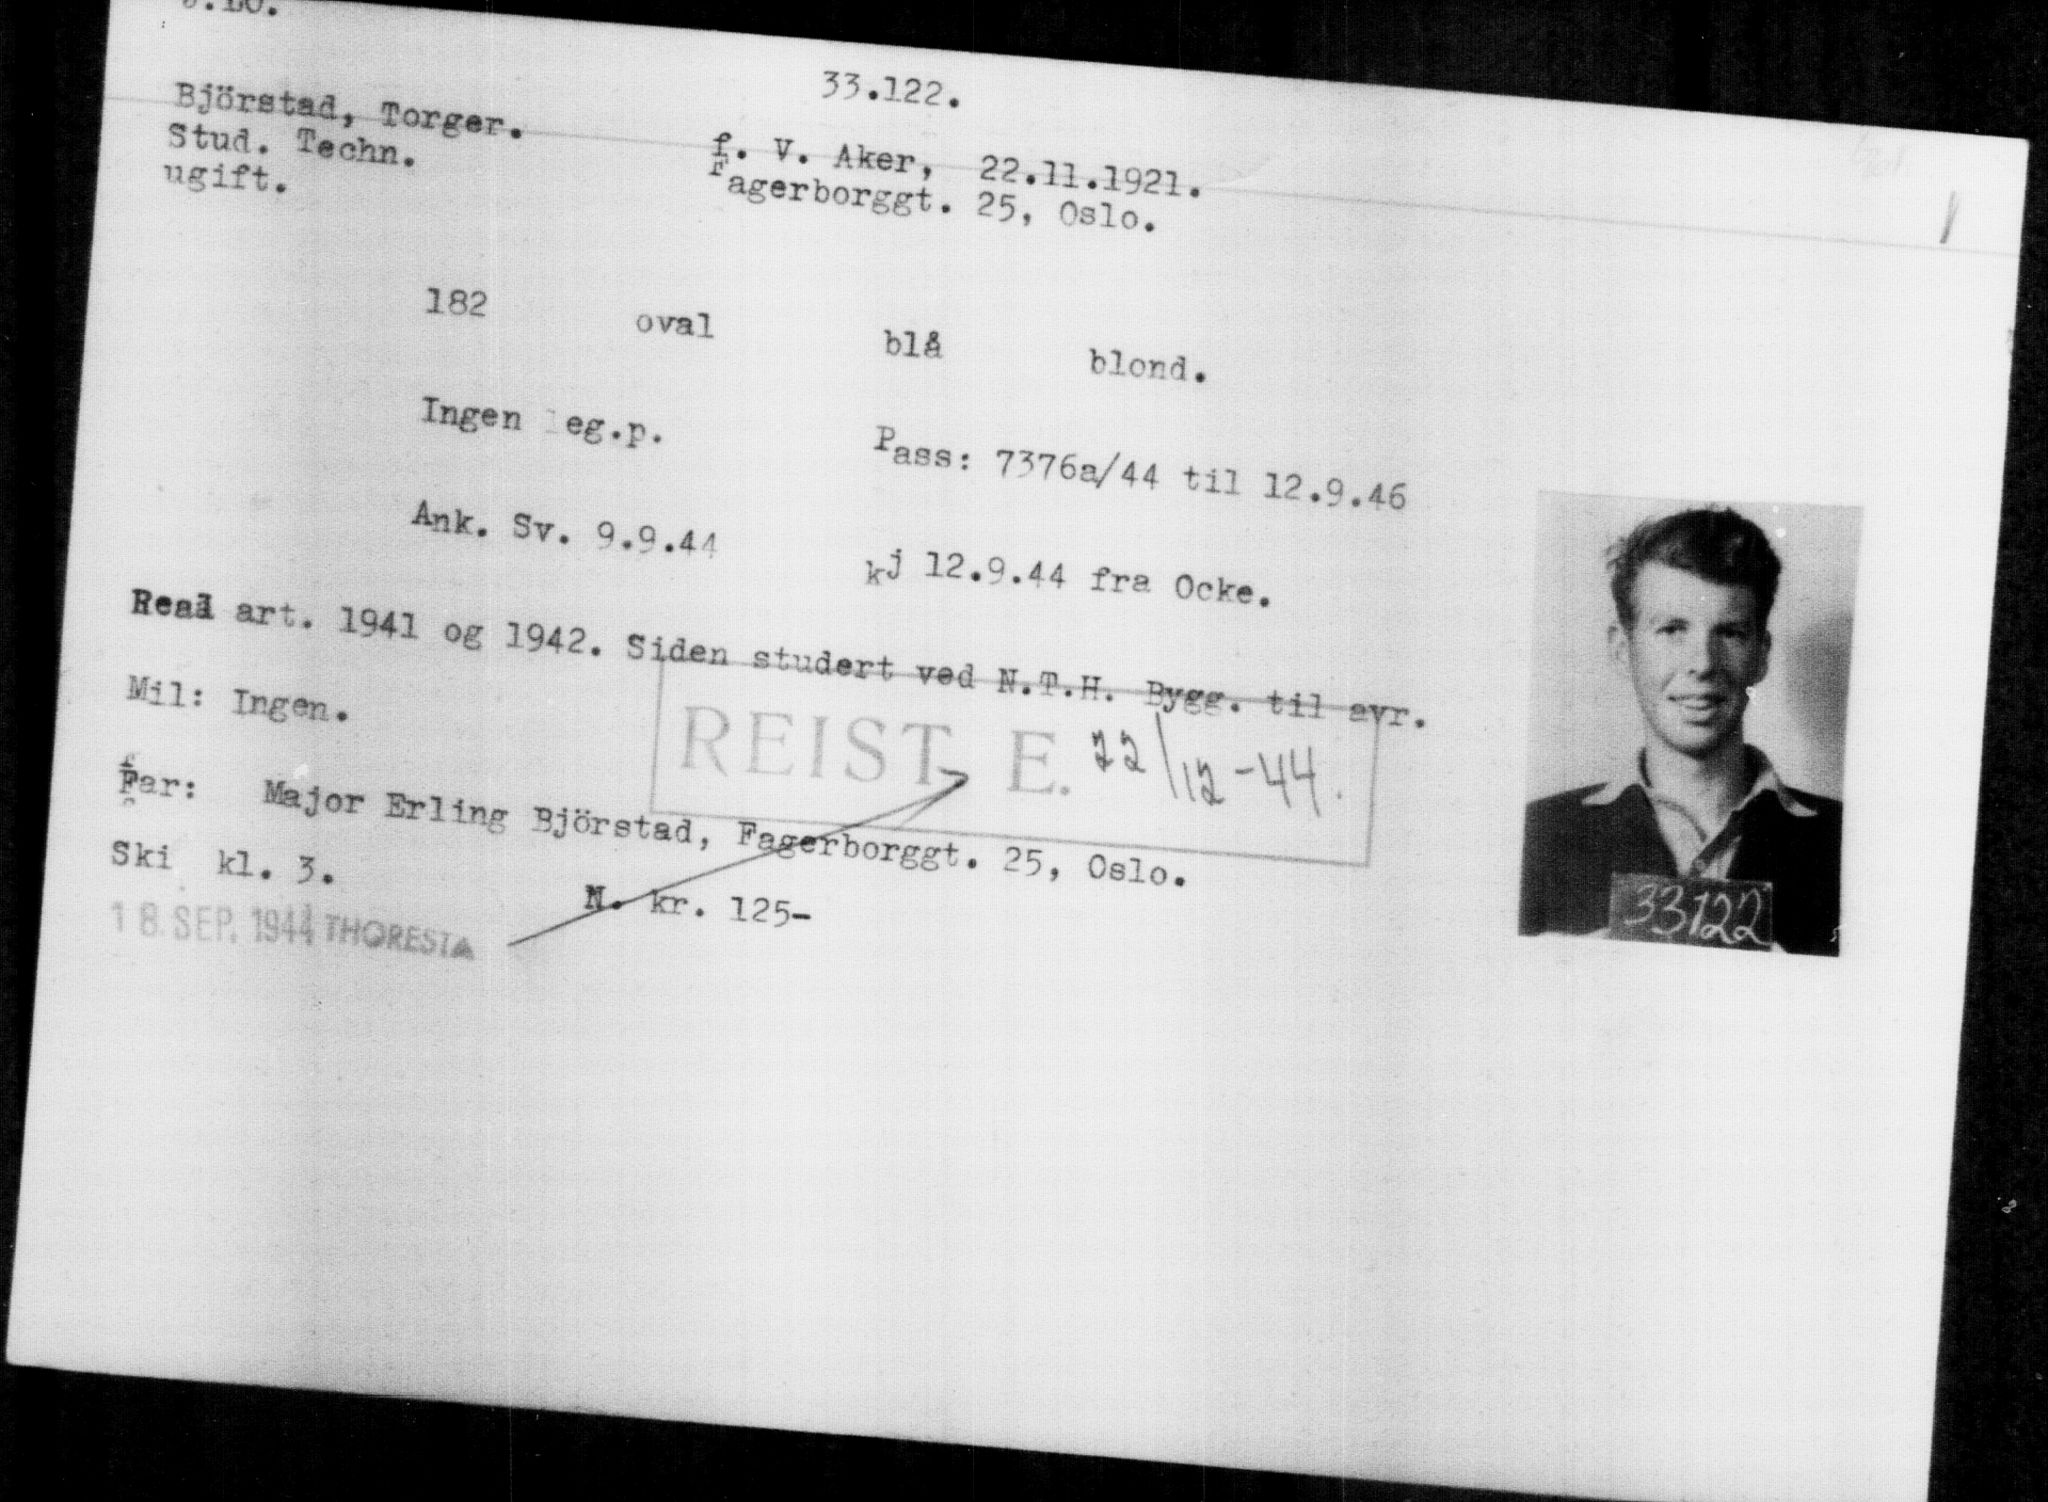 33.122.
Björstad, Torger.
f. V. Aker, 22.11.1921.
Stud. Techn.
Fagerborggt. 25, Oslo.
ugift.
182 oval blå blond.
Ingen leg.p. Pass: 7376a/44 til 12.9.46
Ank. Sv. 9.9.44 kj 12.9.44 fra Ocke.
Real art. 1941 og 1942. Siden studert ved N.T.H. Bygg. til avr.
Mil: Ingen.
REIST E. 22/12-44.
Far: Major Erling Björstad, Fagerborggt. 25, Oslo.
Ski kl. 3.
N. kr. 125-
18. SEP. 1944 THORESTA
33122